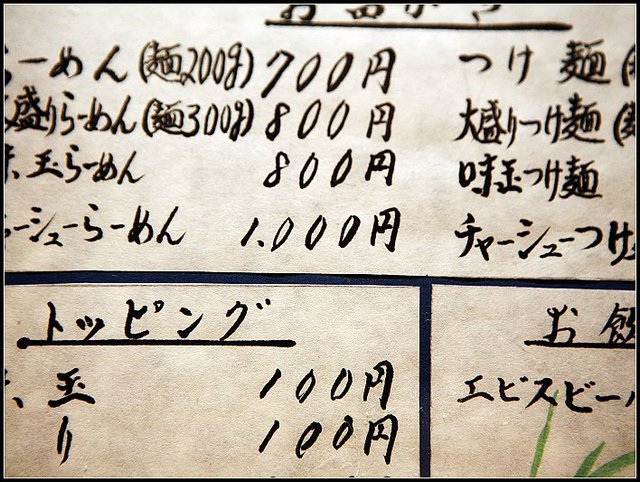 お品がき
らーめん(麺200g) 700円 つけ麺(
大盛りらーめん(麺300g) 800円 大盛りつけ麺(
味玉らーめん 800円 味玉つけ麺
チャーシューらーめん 1,000円 チャーシューつけ
トッピング お飲
味玉 100円 エビスビー
り 100円